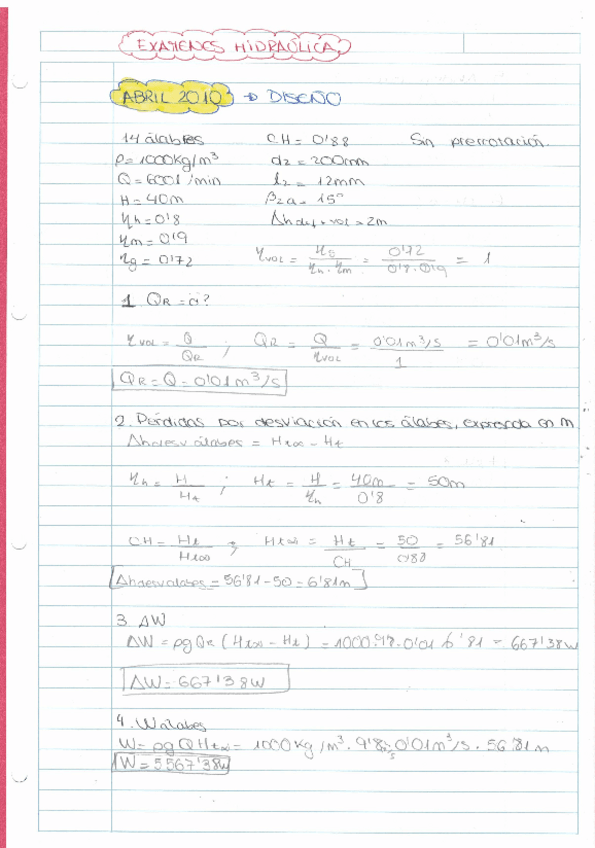 EXAMENES HIDRAÚLICA
ABRIL 2010 → DISEÑO
14 álabes CH = 0'88 Sin prerrotación.
ρ = 1000 kg/m³ d2 = 200mm
Q = 600 l/min b2 = 12mm
H = 40m β2a = 15°
ηh = 0'8 Δh dif+vol = 2m
ηm = 0'9
ηg = 0'72 ηvol = ηg / ηh · ηm = 0'72 / 0'8 · 0'9 = 1
1 QR = ¿?
ηvol = Q / QR ; QR = Q / ηvol = 0'01 m³/s / 1 = 0'01 m³/s
QR = Q = 0'01 m³/s
2. Pérdidas por desviación en los álabes, expresada en m
Δh desv álabes = Ht∞ - Ht
ηh = H / Ht ; Ht = H / ηh = 40m / 0'8 = 50m
CH = Ht / Ht∞ ; Ht∞ = Ht / CH = 50 / 0'88 = 56'81
Δh desv álabes = 56'81 - 50 = 6'81m
3. ΔW
ΔW = ρg QR (Ht∞ - Ht) = 1000·9'8·0'01·6'81 = 667'38w
ΔW = 667'38w
4. Wálabes
W = ρg Q Ht∞ = 1000 kg/m³ · 9'8 · 0'01 m³/s · 56'81 m
W = 5567'38w